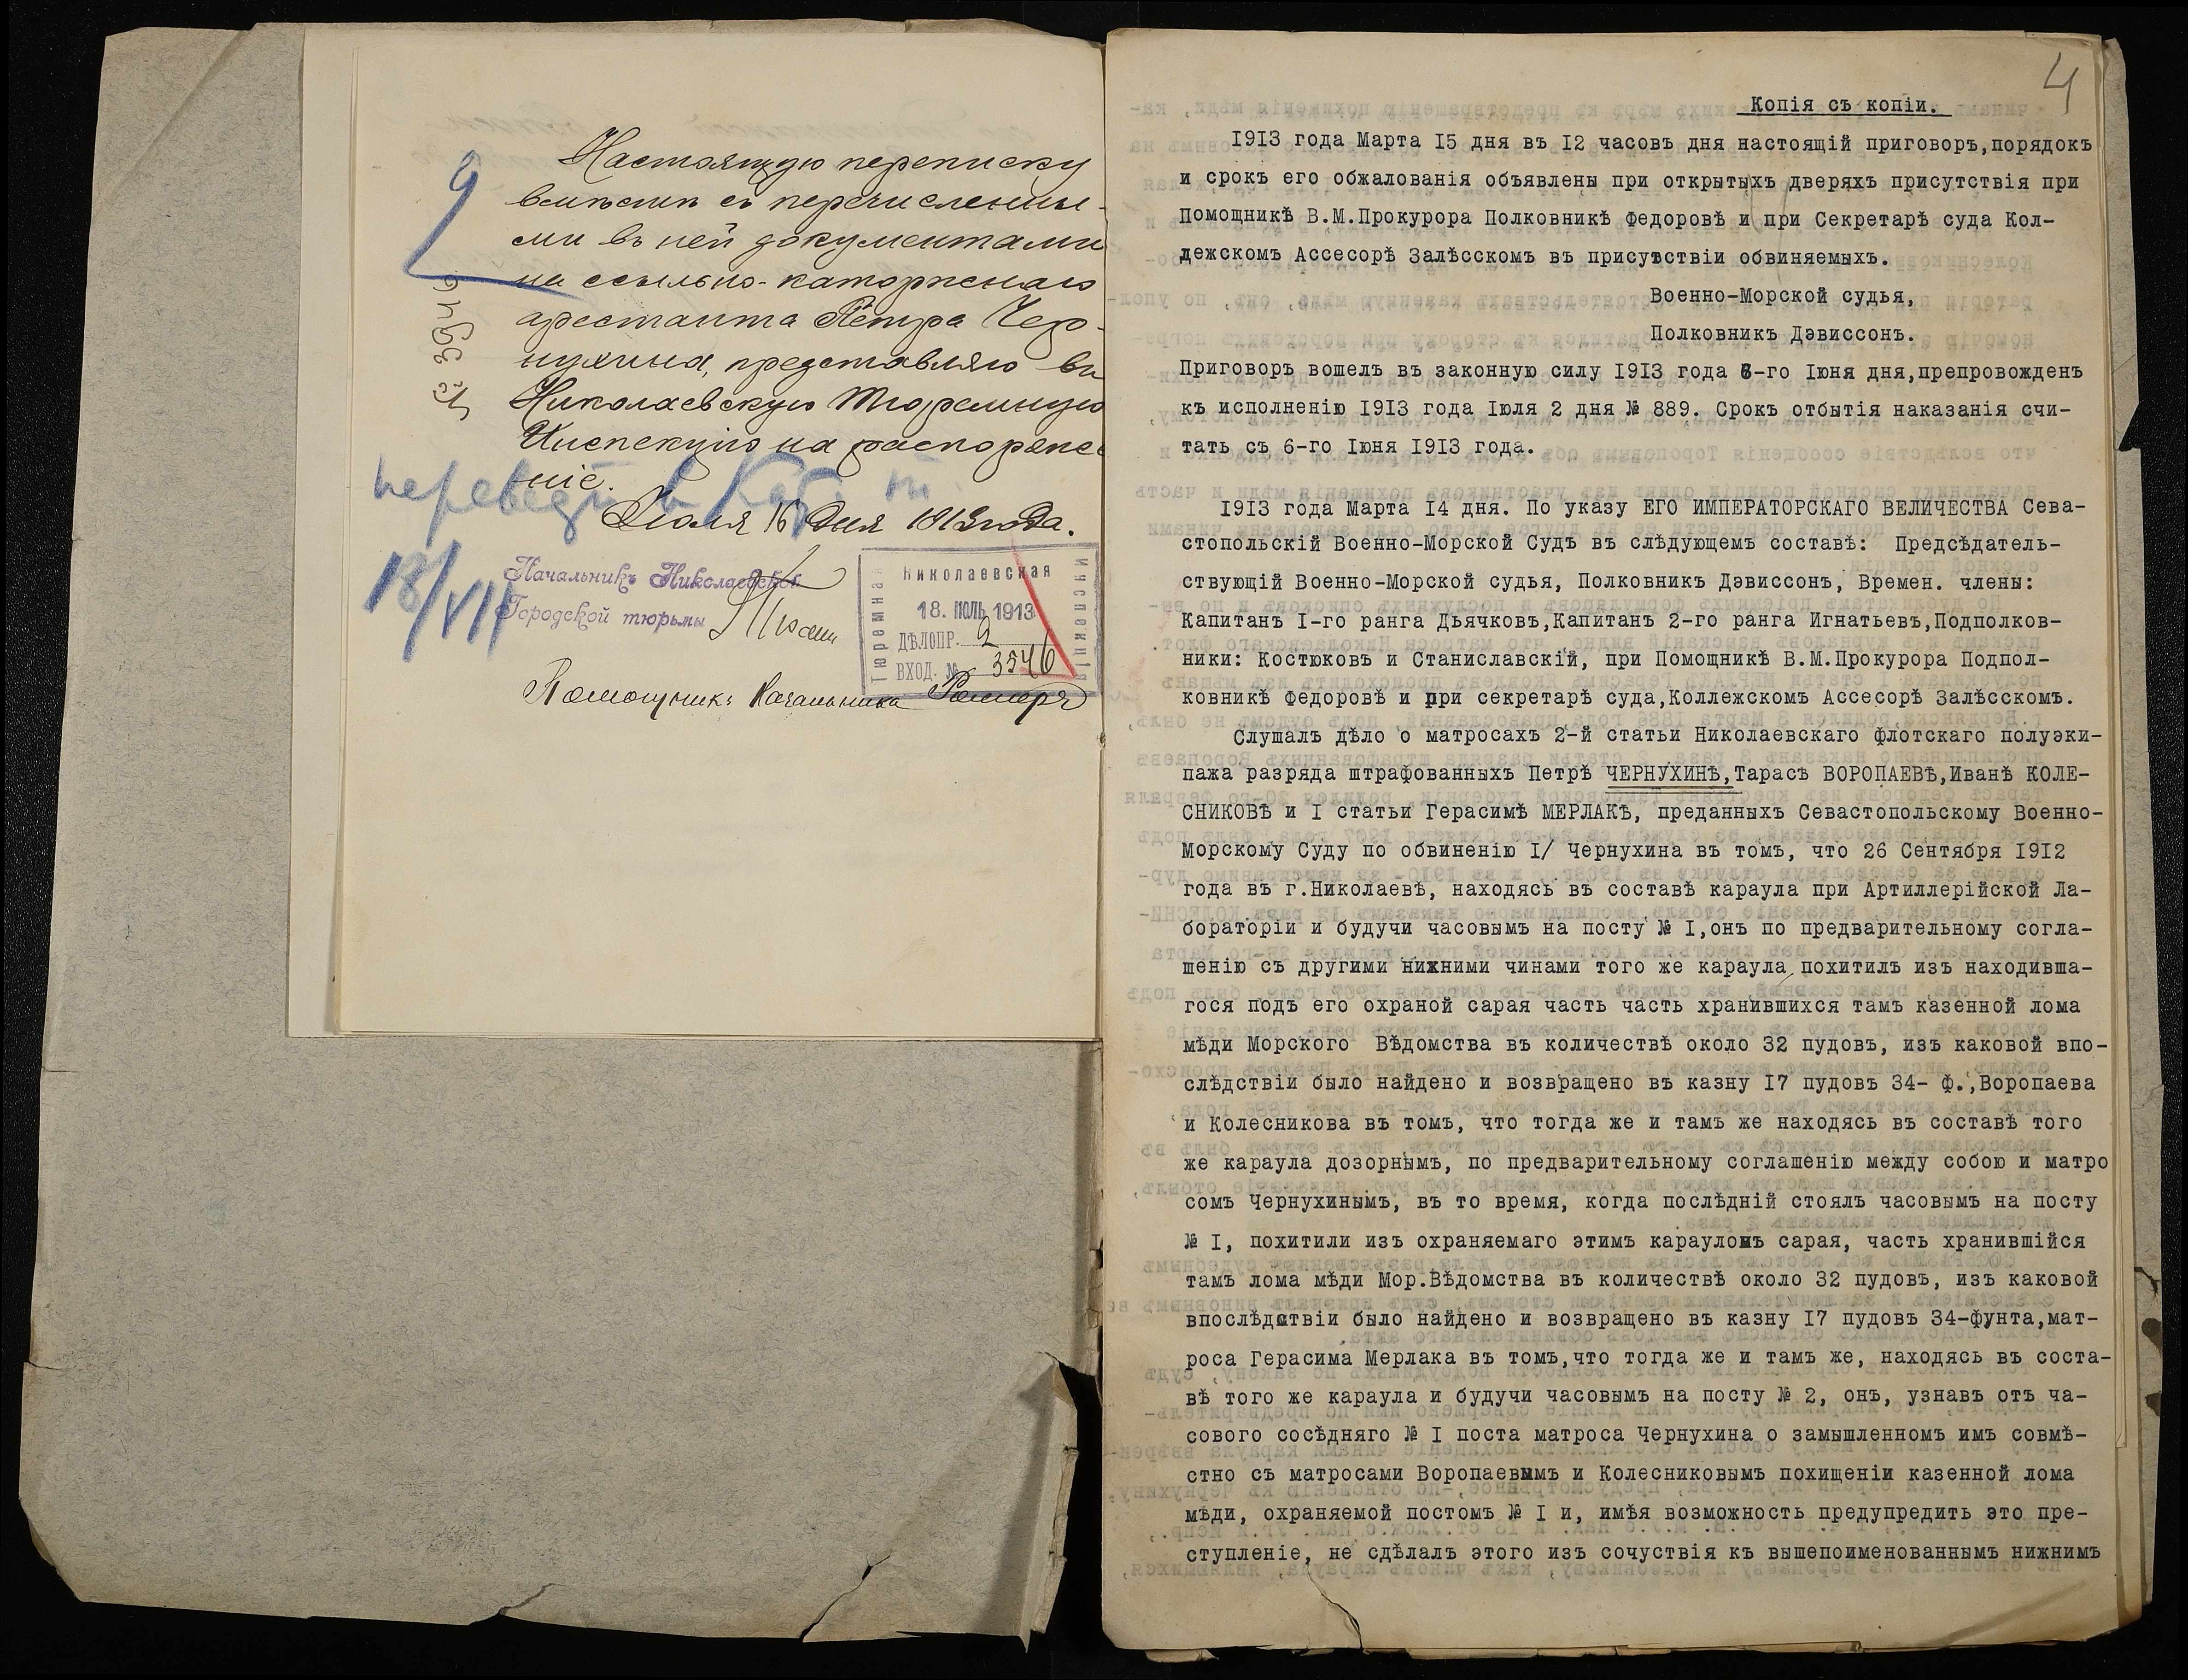 Настоящую переписку
вмѣстѣ съ перечисленны-
ми въ ней документами
на ссыльно-каторжнаго
арестанта Петра Чер-
нухина, представляю въ
Николаевскую Тюремную
Инспекцію на распоряже-
ніе.
Іюля 16 дня 1913 года.
№ 3946
18/VII
Начальникъ Николаевской
Городской тюрьмы
Николаевская
Тюремная
Инспекція
18. ІЮЛЬ 1913
ДѢЛОПР. 2
ВХОД. № 3546
Помощникъ Начальника
4
Копія съ копіи.
1913 года Марта 15 дня въ 12 часовъ дня настоящій приговоръ,порядокъ
и срокъ его обжалованія объявлены при открытыхъ дверяхъ присутствія при
Помощникѣ В.М.Прокурора Полковникѣ Федоровѣ и при Секретарѣ суда Кол-
лежскомъ Ассесорѣ Залѣсскомъ въ присутствіи обвиняемыхъ.
Военно-Морской судья,
Полковникъ Дэвиссонъ.
Приговоръ вошелъ въ законную силу 1913 года 6-го Іюня дня,препровожденъ
къ исполненію 1913 года Іюля 2 дня № 889. Срокъ отбытія наказанія счи-
тать съ 6-го Іюня 1913 года.
1913 года Марта 14 дня. По указу ЕГО ИМПЕРАТОРСКАГО ВЕЛИЧЕСТВА Сева-
стопольскій Военно-Морской Судъ въ слѣдующемъ составѣ: Предсѣдатель-
ствующій Военно-Морской судья, Полковникъ Дэвиссонъ, Времен. члены:
Капитанъ I-го ранга Дьячковъ,Капитанъ 2-го ранга Игнатьевъ,Подполков-
ники: Костюковъ и Станиславскій, при Помощникѣ В.М.Прокурора Подпол-
ковникѣ Федоровѣ и при секретарѣ суда,Коллежскомъ Ассесорѣ Залѣсскомъ.
Слушалъ дѣло о матросахъ 2-й статьи Николаевскаго флотскаго полуэки-
пажа разряда штрафованныхъ Петрѣ ЧЕРНУХИНѢ,Тарасѣ ВОРОПАЕВѢ,Иванѣ КОЛЕ-
СНИКОВѢ и I статьи Герасимѣ МЕРЛАКѢ, преданныхъ Севастопольскому Военно-
Морскому Суду по обвиненію I/ Чернухина въ томъ, что 26 Сентября 1912
года въ г.Николаевѣ, находясь въ составѣ караула при Артиллерійской Ла-
бораторіи и будучи часовымъ на посту № I,онъ по предварительному согла-
шенію съ другими нижними чинами того же караула похитилъ изъ находивша-
гося подъ его охраной сарая часть часть хранившихся тамъ казенной лома
мѣди Морского Вѣдомства въ количествѣ около 32 пудовъ, изъ каковой впо-
слѣдствіи было найдено и возвращено въ казну 17 пудовъ 34- ф.,Воропаева
и Колесникова въ томъ, что тогда же и тамъ же находясь въ составѣ того
же караула дозорнымъ, по предварительному соглашенію между собою и матро
сомъ Чернухинымъ, въ то время, когда послѣдній стоялъ часовымъ на посту
№ I, похитили изъ охраняемаго этимъ карауломъ сарая, часть хранившійся
тамъ лома мѣди Мор.Вѣдомства въ количествѣ около 32 пудовъ, изъ каковой
впослѣдствіи было найдено и возвращено въ казну 17 пудовъ 34-фунта,мат-
роса Герасима Мерлака въ томъ,что тогда же и тамъ же, находясь въ соста-
вѣ того же караула и будучи часовымъ на посту № 2, онъ, узнавъ отъ ча-
сового сосѣдняго № I поста матроса Чернухина о замышленномъ имъ совмѣ-
стно съ матросами Воропаевымъ и Колесниковымъ похищеніи казенной лома
мѣди, охраняемой постомъ № I и, имѣя возможность предупредить это пре-
ступленіе, не сдѣлалъ этого изъ сочуствія къ вышепоименованнымъ нижнимъ